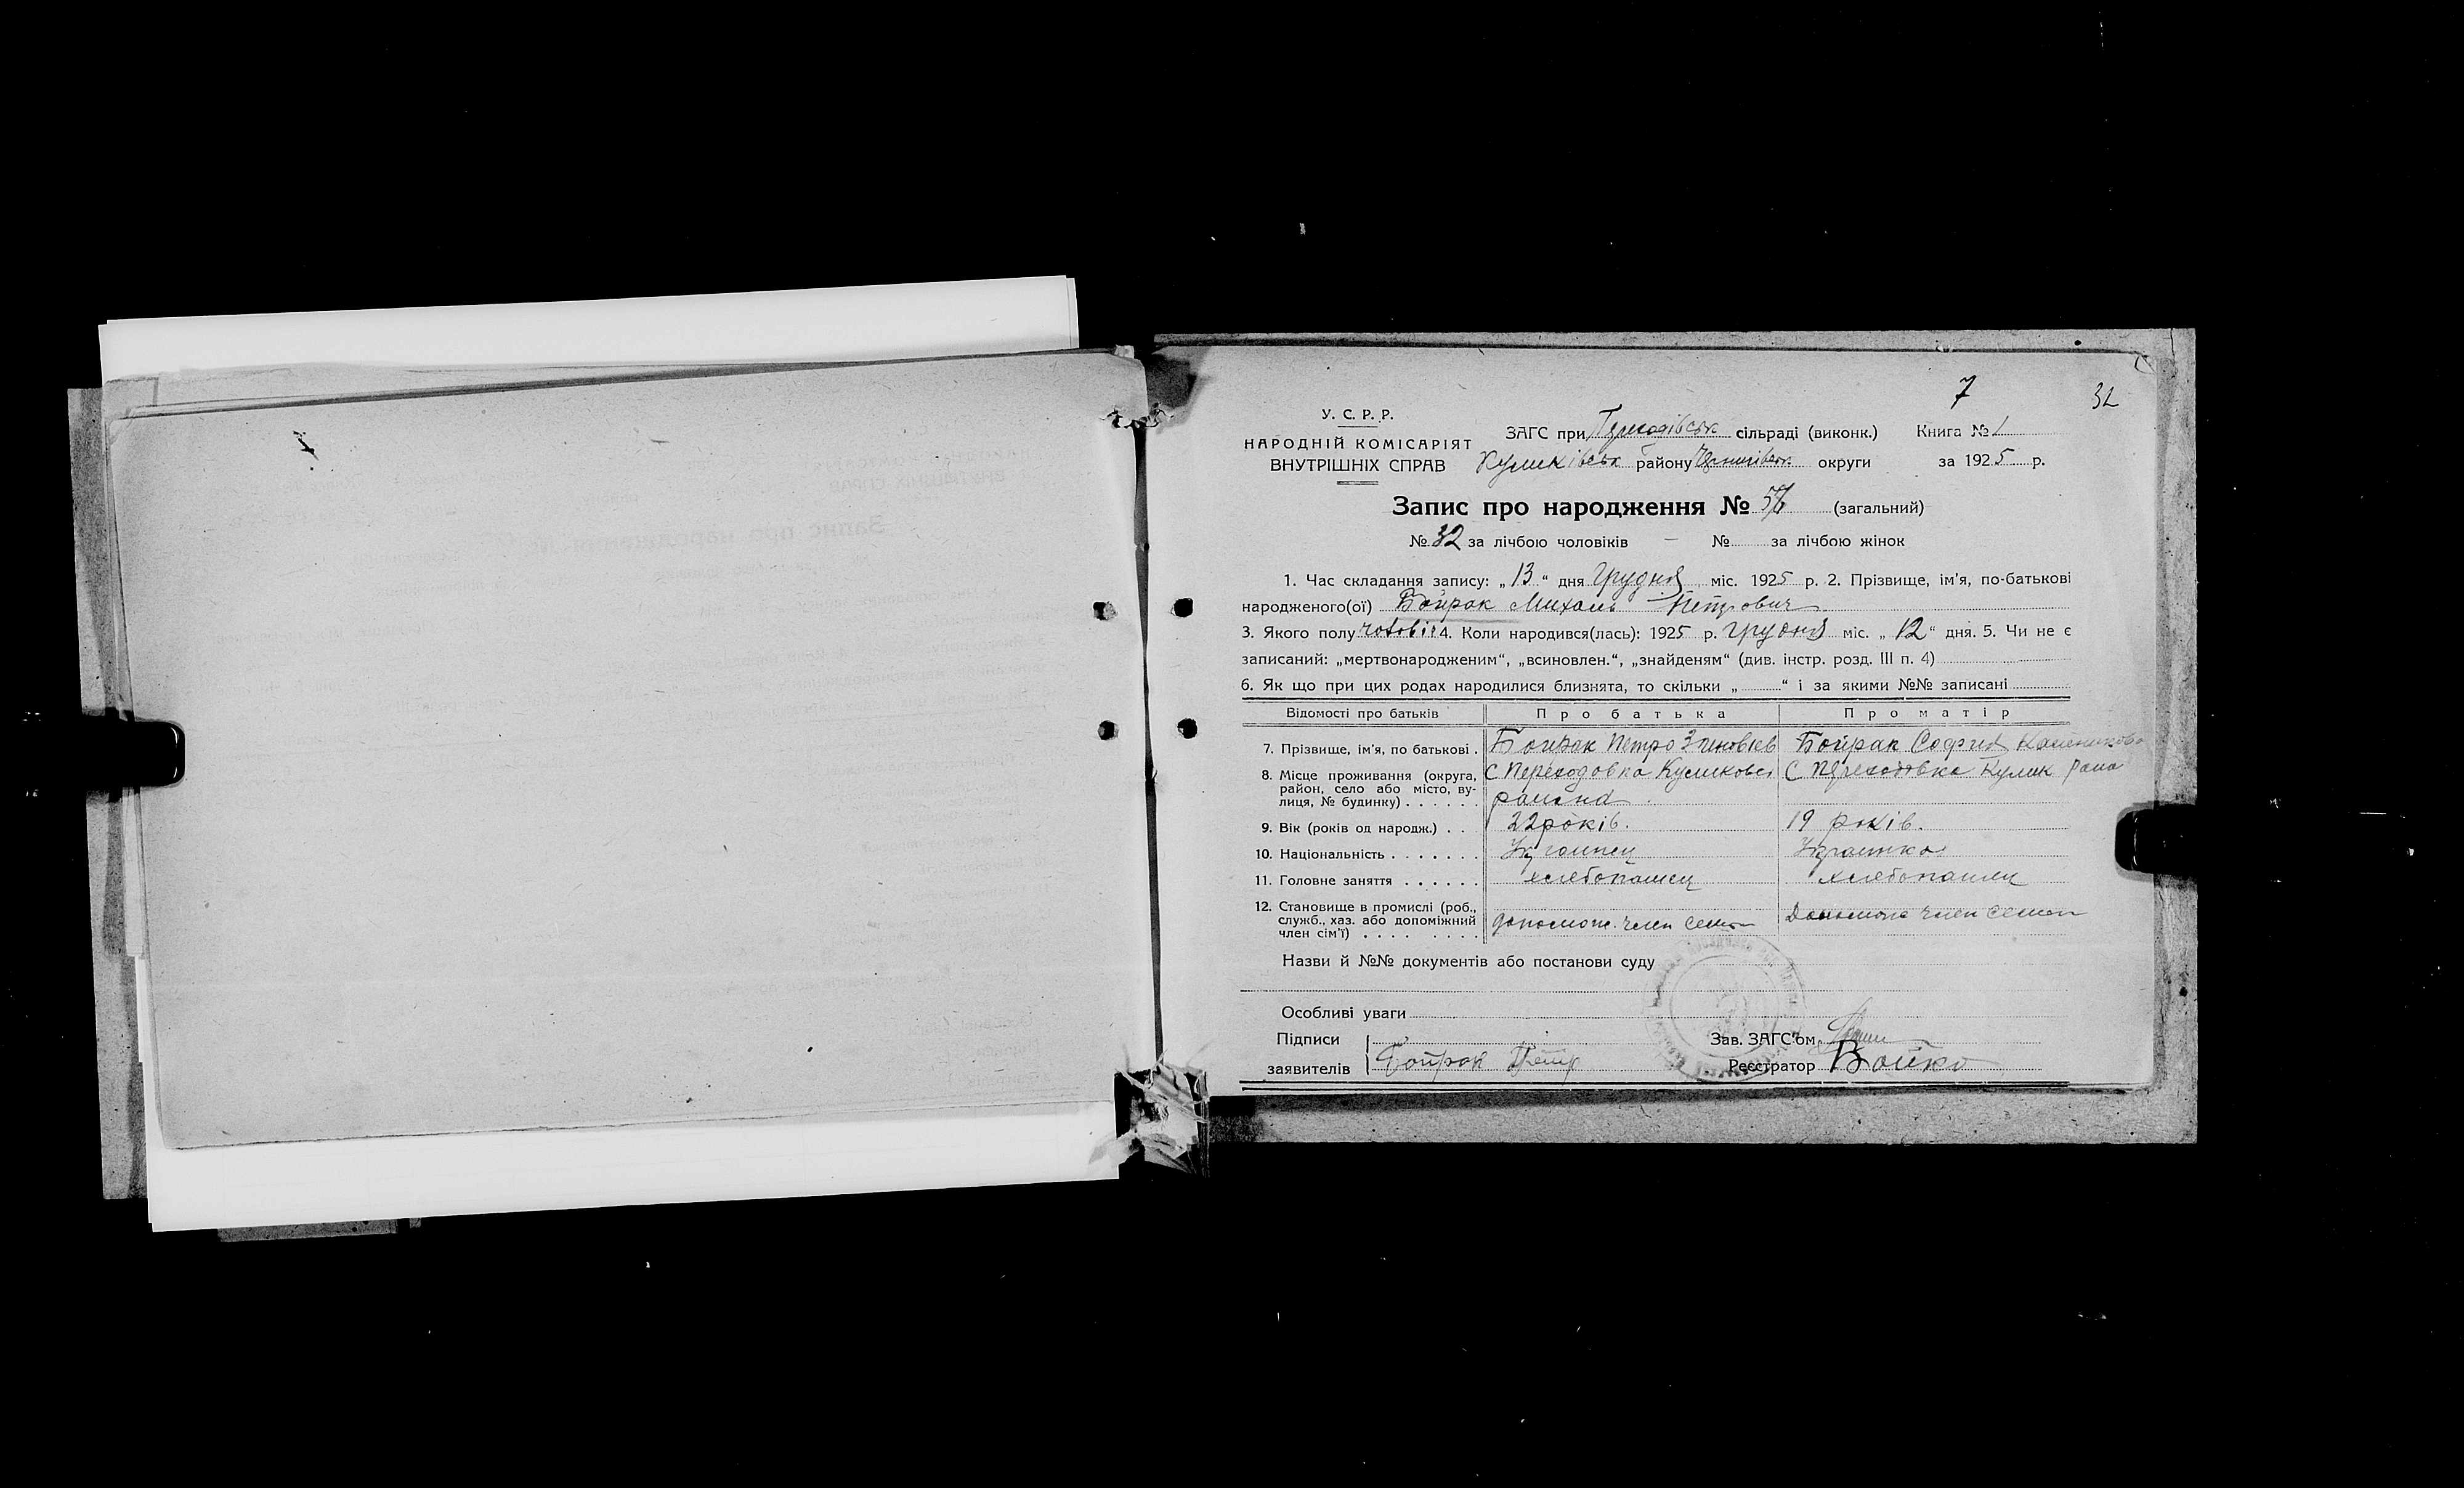 7
32
У. С. Р. Р.
НАРОДНІЙ КОМІСАРІЯТ
ВНУТРІШНІХ СПРАВ
ЗАГС при Переходівськ сільраді (виконк.) Книга № 1
Куликівськ району Чернигівськ округи за 1925 р.
Запис про народження № 56 (загальний)
№ 32 за лічбою чоловіків — № за лічбою жінок
1. Час складання запису: „13“ дня Грудня міс. 1925 р. 2. Прізвище, ім'я, по-батькові
народженого(ої) Бойрак Михаль Петрович
3. Якого полу 4. Коли народився(лась): 1925 р. Грудня міс. „12“ дня. 5. Чи не є
записаний: „мертвонародженим“, „всиновлен.“, „знайденям“ (див. інстр. розд. III п. 4)
6. Як що при цих родах народилися близнята, то скільки „ “ і за якими №№ записані
Відомості про батьків Про батька Про матір
7. Прізвище, ім'я, по батькові . Бойрак Петро Зиновіев Бойрак София
8. Місце проживання (округа, С Переходовка Куликовск С Переходовка Кулик раиа
район, село або місто, ву-
лиця, № будинку) . . . . . . раиона
9. Вік (років од народж.) . . 22 років. 19 років.
10. Національність . . . . . . . Украинец Украинка
11. Головне заняття . . . . . . хлебопашец хлебопашец
12. Становище в промислі (роб.,
служб., хаз. або допоміжний допомож. член семи член семи
член сім'ї) . . . . . . . .
Назви й №№ документів або постанови суду
Особливі уваги
Підписи
заявителів Бойрак Петр
Зав. ЗАГС'ом
Реєстратор Бойко